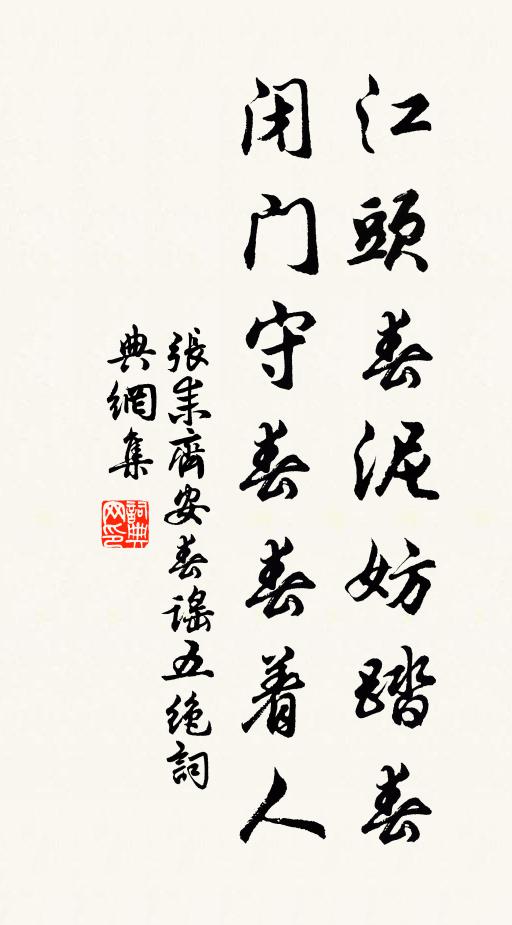 江頭春泥妨踏春
閉門守春春着人
張耒齊安春謠五絶詞
典網集
詞典网印